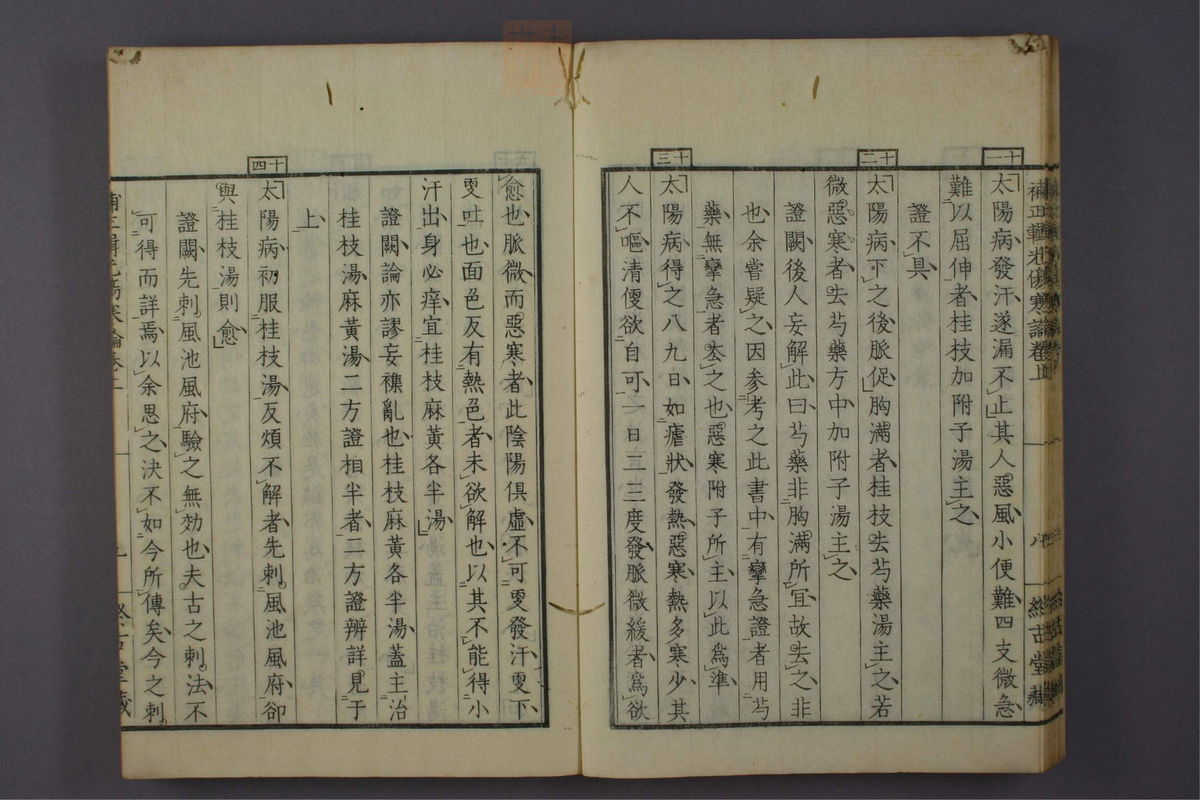 補正輯光傷寒論卷上 八 然古堂藏
十一
太陽病發汗遂漏不止其人惡風小便難四支微急
難以屈伸者桂枝加附子湯主之
證不具
十二
太陽病下之後脈促胸滿者桂枝去芍藥湯主之若
微惡寒者去芍藥方中加附子湯主之
證闕後人妄解此曰芍藥非胸滿所宜故去之非
也余嘗疑之因參考之此書中有攣急證者用芍
藥無攣急者去之也惡寒附子所主以此爲準
十三
太陽病得之八九日如瘧狀發熱惡寒熱多寒少其
人不嘔清便欲自可一日二三度發脈微緩者爲欲
愈也脈微而惡寒者此陰陽俱虛不可更發汗更下
更吐也面色反有熱色者未欲解也以其不能得小
汗出身必痒宜桂枝麻黃各半湯
證闕論亦謬妄襍亂也桂枝麻黃各半湯蓋主治
桂枝湯麻黃湯二方證相半者二方證辨詳見于
上
十四
太陽病初服桂枝湯反煩不解者先刺風池風府卻
與桂枝湯則愈
證闕先刺風池風府驗之無効也夫古之刺法不
可得而詳焉以余思之決不如今所傳矣今之刺